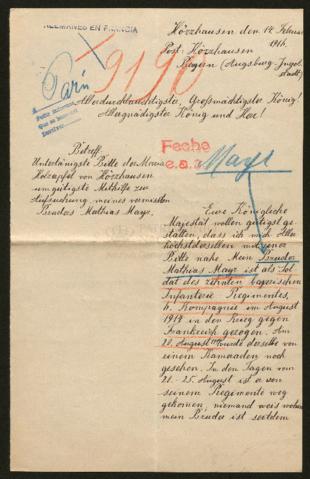 ALEMANES EN FRANCIA
Hörzhausen den 14. Februar
1916.
Post: Hörzhausen
Bayern (Augsburg-Ingol-
stadt)
París
9196
Allerdurchlauchtigster, Großmächtigster König!
Allergnädigster König und Herr!
Fecha
e.a.a
Mayr
Betreff.
Unterthänigste Bitte der Maria
Holzapfel von Hörzhausen
um gütigste Mithilfe zur
Aufsuchung meines vermissten
Bruders Mathias Mayr.
Eure Königliche
Majestät wollen gütigst ge-
statten, dass ich mich Aller-
höchstdieselben mit einer
Bitte nahe. Mein Bruder
Mathias Mayr ist als Sol-
dat des zehnten bayerischen
Infanterie Regimentes,
6. Kompagnie im August
1914 in den Krieg gegen
Frankreich gezogen. Am
20. August wurde derselbe von
einem Kamaraden noch
gesehen. In den Tagen vom
21.-25. August ist er von
seinem Regimente weg
gekommen, niemand weis wohin
mein Bruder ist seitdem